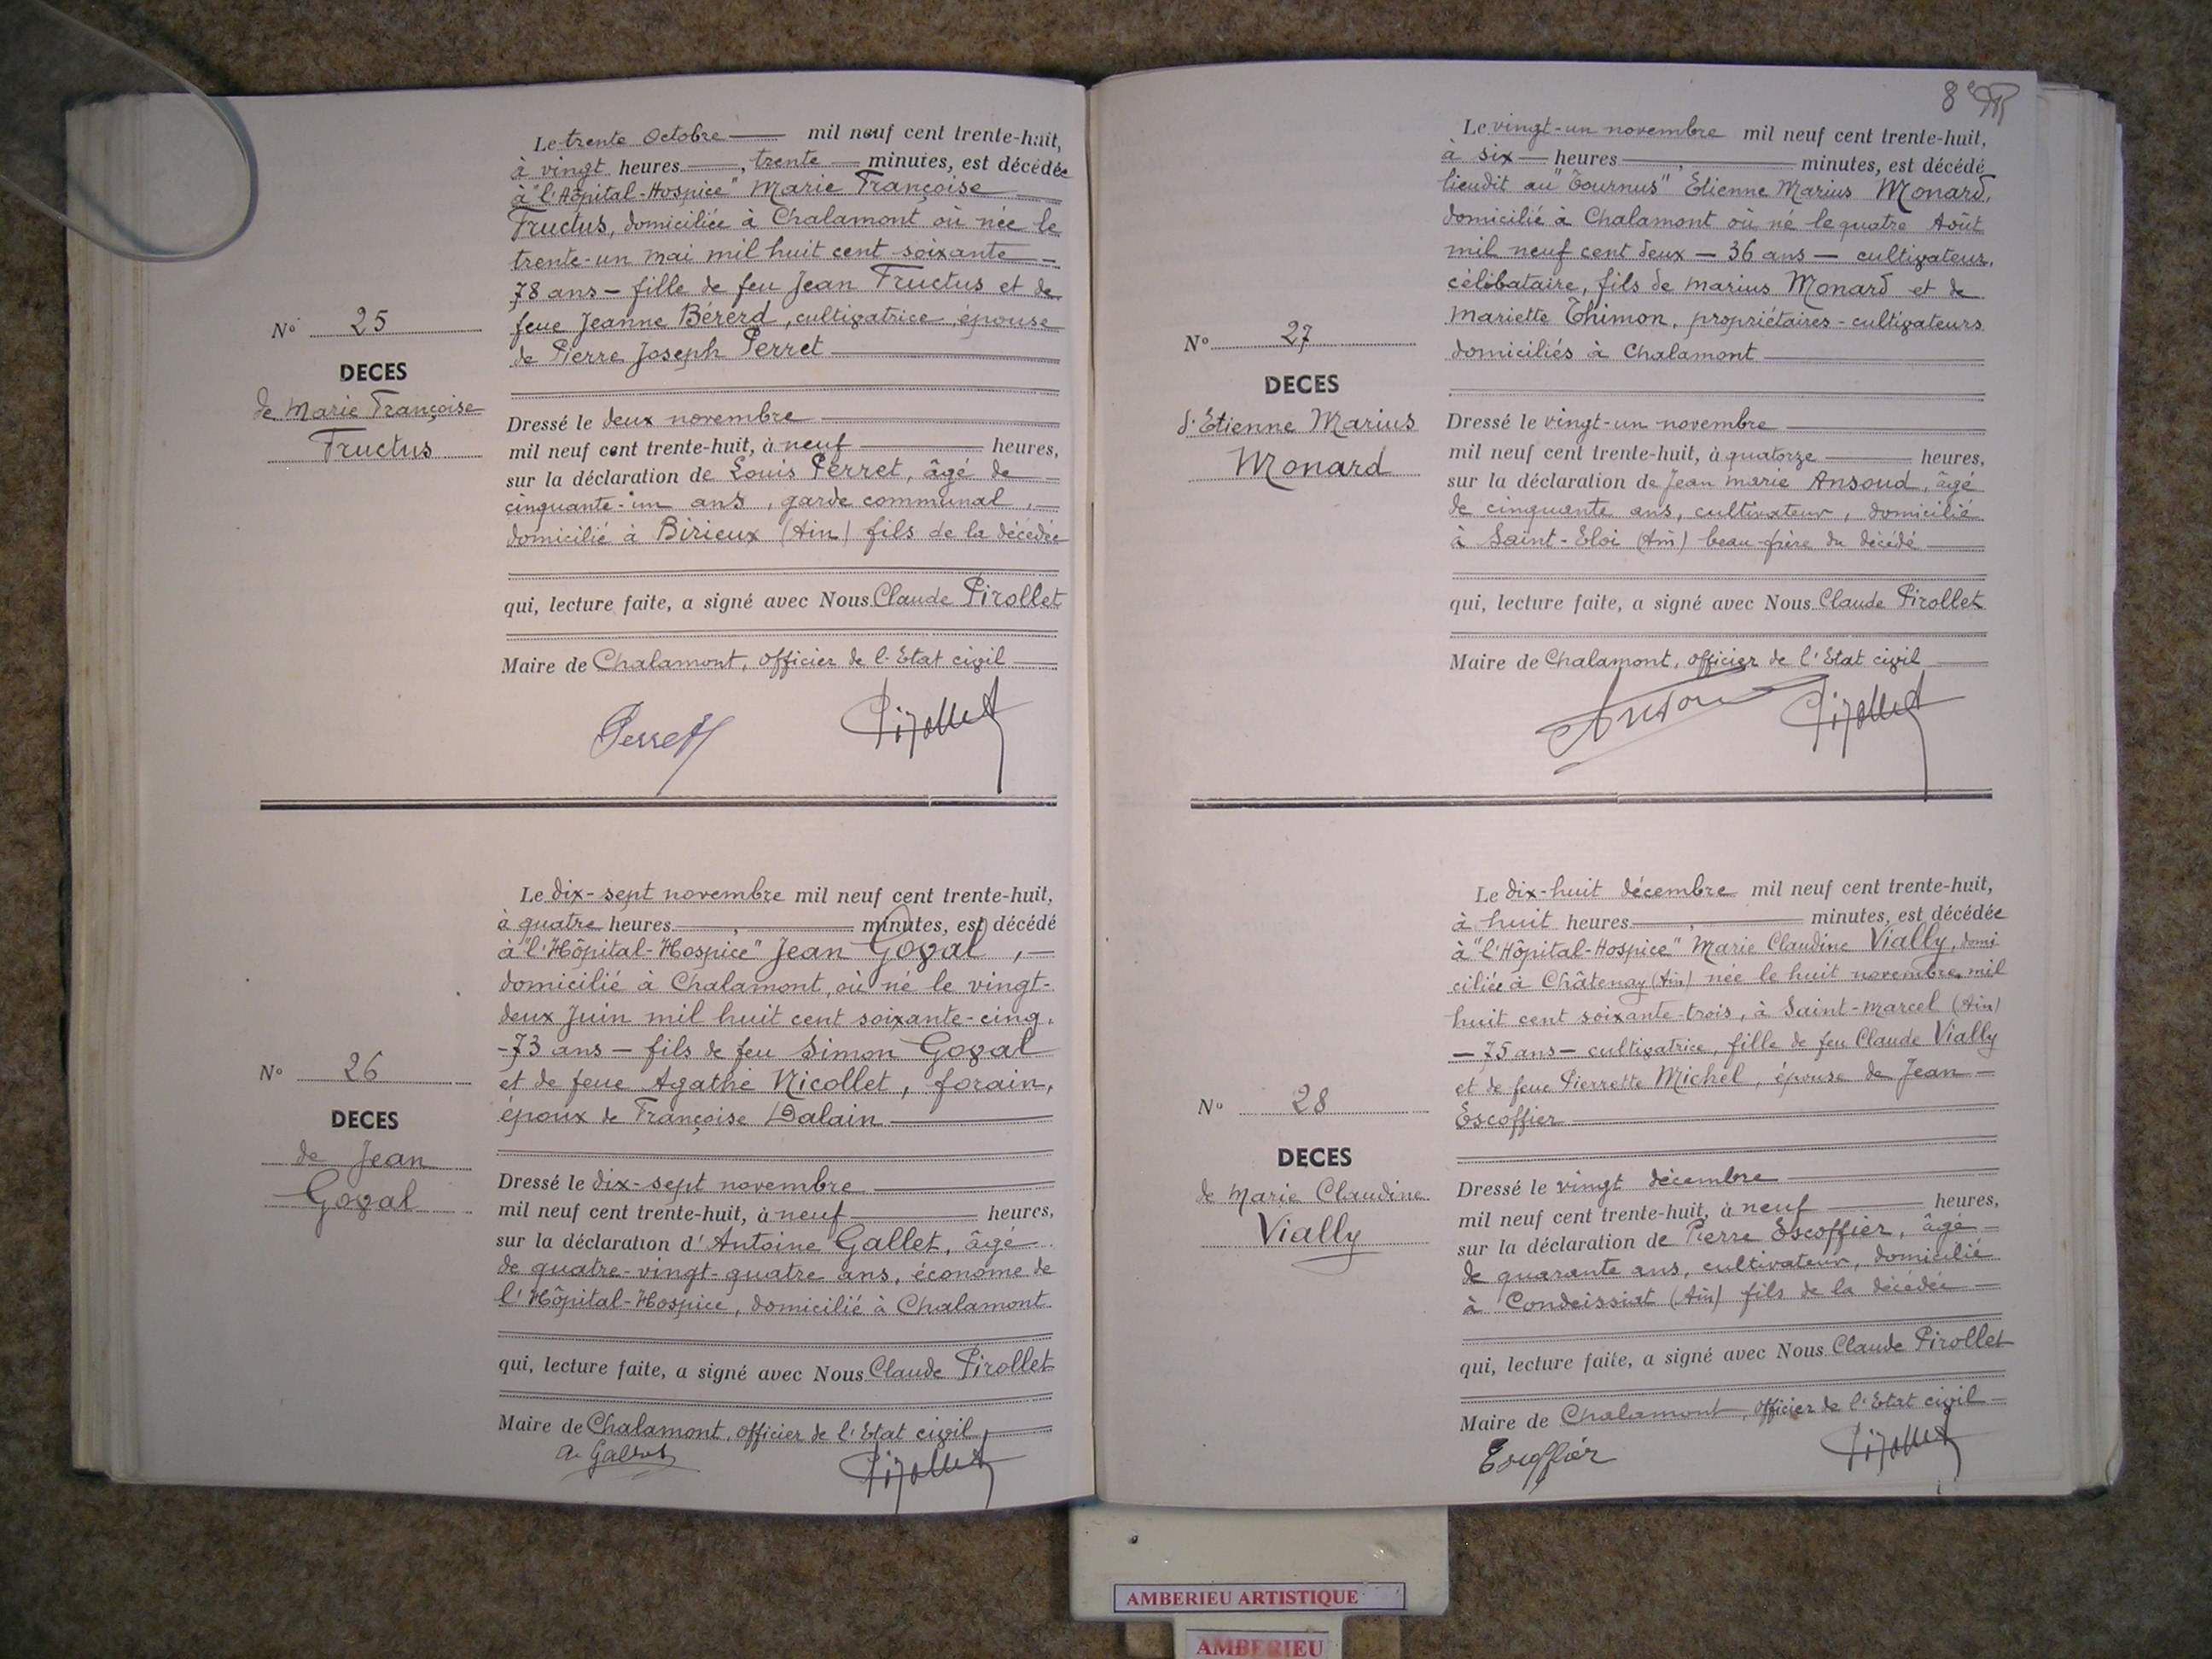 Le trente Octobre mil neuf cent trente-huit,
à vingt heures, trente minutes, est décédée
à "l'Hôpital-Hospice" Marie Françoise
Fructus, domiciliée à Chalamont où née le
trente-un mai mil huit cent soixante
78 ans - fille de feu Jean Fructus et de
feue Jeanne Bérerd, cultivatrice, épouse
de Pierre Joseph Perret
N° 25
DECES
de Marie Françoise
Fructus
Dressé le deux novembre
mil neuf cent trente-huit, à neuf heures,
sur la déclaration de Louis Perret, âgé de
cinquante-un ans, garde communal,
domicilié à Birieux (Ain) fils de la décédée
qui, lecture faite, a signé avec Nous Claude Pirollet
Maire de Chalamont, officier de l'Etat civil
Perret Pirollet
Le dix-sept novembre mil neuf cent trente-huit,
à quatre heures, minutes, est décédé
à "l'Hôpital-Hospice" Jean Goval,
domicilié à Chalamont, où né le vingt-
deux Juin mil huit cent soixante-cinq.
-73 ans - fils de feu Simon Goval
et de feue Agathe Nicollet, forain,
époux de Françoise Dalain
N° 26
DECES
de Jean
Goval
Dressé le dix-sept novembre
mil neuf cent trente-huit, à neuf heures,
sur la déclaration d'Antoine Gallet, âgé
de quatre-vingt-quatre ans, économe de
l'Hôpital-Hospice, domicilié à Chalamont
qui, lecture faite, a signé avec Nous Claude Pirollet
Maire de Chalamont, officier de l'Etat civil
Pirollet
8e
Le vingt-un novembre mil neuf cent trente-huit,
à six heures, minutes, est décédé
lieudit au "Tournus" Etienne Marius Monard,
domicilié à Chalamont où né le quatre Août
mil neuf cent deux - 36 ans - cultivateur,
célibataire, fils de Marius Monard et de
Mariette Thimon, propriétaires-cultivateurs
domiciliés à Chalamont
N° 27
DECES
d'Etienne Marius
Monard
Dressé le vingt-un novembre
mil neuf cent trente-huit, à quatorze heures,
sur la déclaration de Jean Marie Ansoud, âgé
de cinquante ans, cultivateur, domicilié
à Saint-Eloi (Ain) beau-frère du décédé
qui, lecture faite, a signé avec Nous Claude Pirollet
Maire de Chalamont, officier de l'Etat civil
Pirollet
Le dix-huit décembre mil neuf cent trente-huit,
à huit heures, minutes, est décédée
à "l'Hôpital-Hospice" Marie Claudine Vially, domi
ciliée à Châtenay (Ain) née le huit novembre mil
huit cent soixante-trois, à Saint-Marcel (Ain)
- 75 ans - cultivatrice, fille de feu Claude Vially
et de feue Pierrette Michel, épouse de Jean -
Escoffier
N° 28
DECES
de Marie Claudine
Vially
Dressé le vingt décembre
mil neuf cent trente-huit, à neuf heures,
sur la déclaration de Pierre Escoffier, âgé
de quarante ans, cultivateur, domicilié
à Condeissiat (Ain) fils de la décédée
qui, lecture faite, a signé avec Nous Claude Pirollet
Maire de Chalamont, officier de l'Etat civil
Escoffier Pirollet
AMBERIEU ARTISTIQUE
AMBERIEU